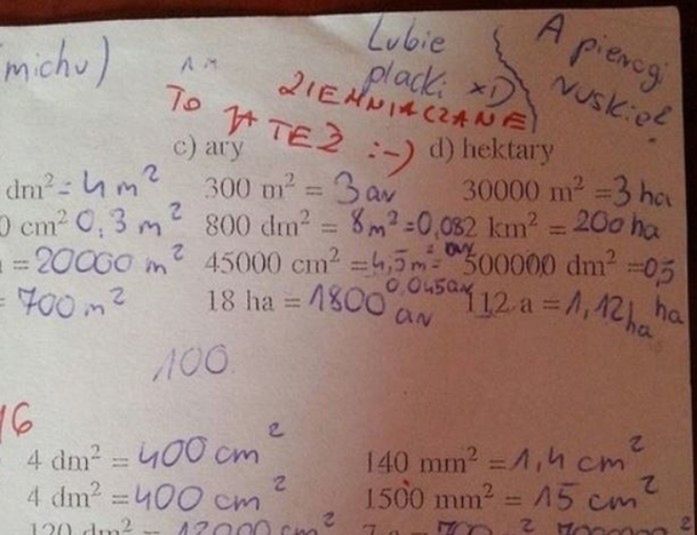 michu)
Lubie
placki xD
A pierogi
ruskie?
ZIEMNIACZANE
TO JA TEŻ :-)
c) ary
d) hektary
dm² = 4 m²
300 m² = 3 ar
30000 m² = 3 ha
0 cm² 0,3 m²
800 dm² = 8 m² = 0,08 ar
2 km² = 200 ha
= 20000 m²
45000 cm² = 4,5 m² = 0,045 ar
500000 dm² = 0,5 ha
= 700 m²
18 ha = 1800 ar
112 a = 1,12 ha
100
16
4 dm² = 400 cm²
140 mm² = 1,4 cm²
4 dm² = 400 cm²
1500 mm² = 15 cm²
120 dm² = 12000 cm²